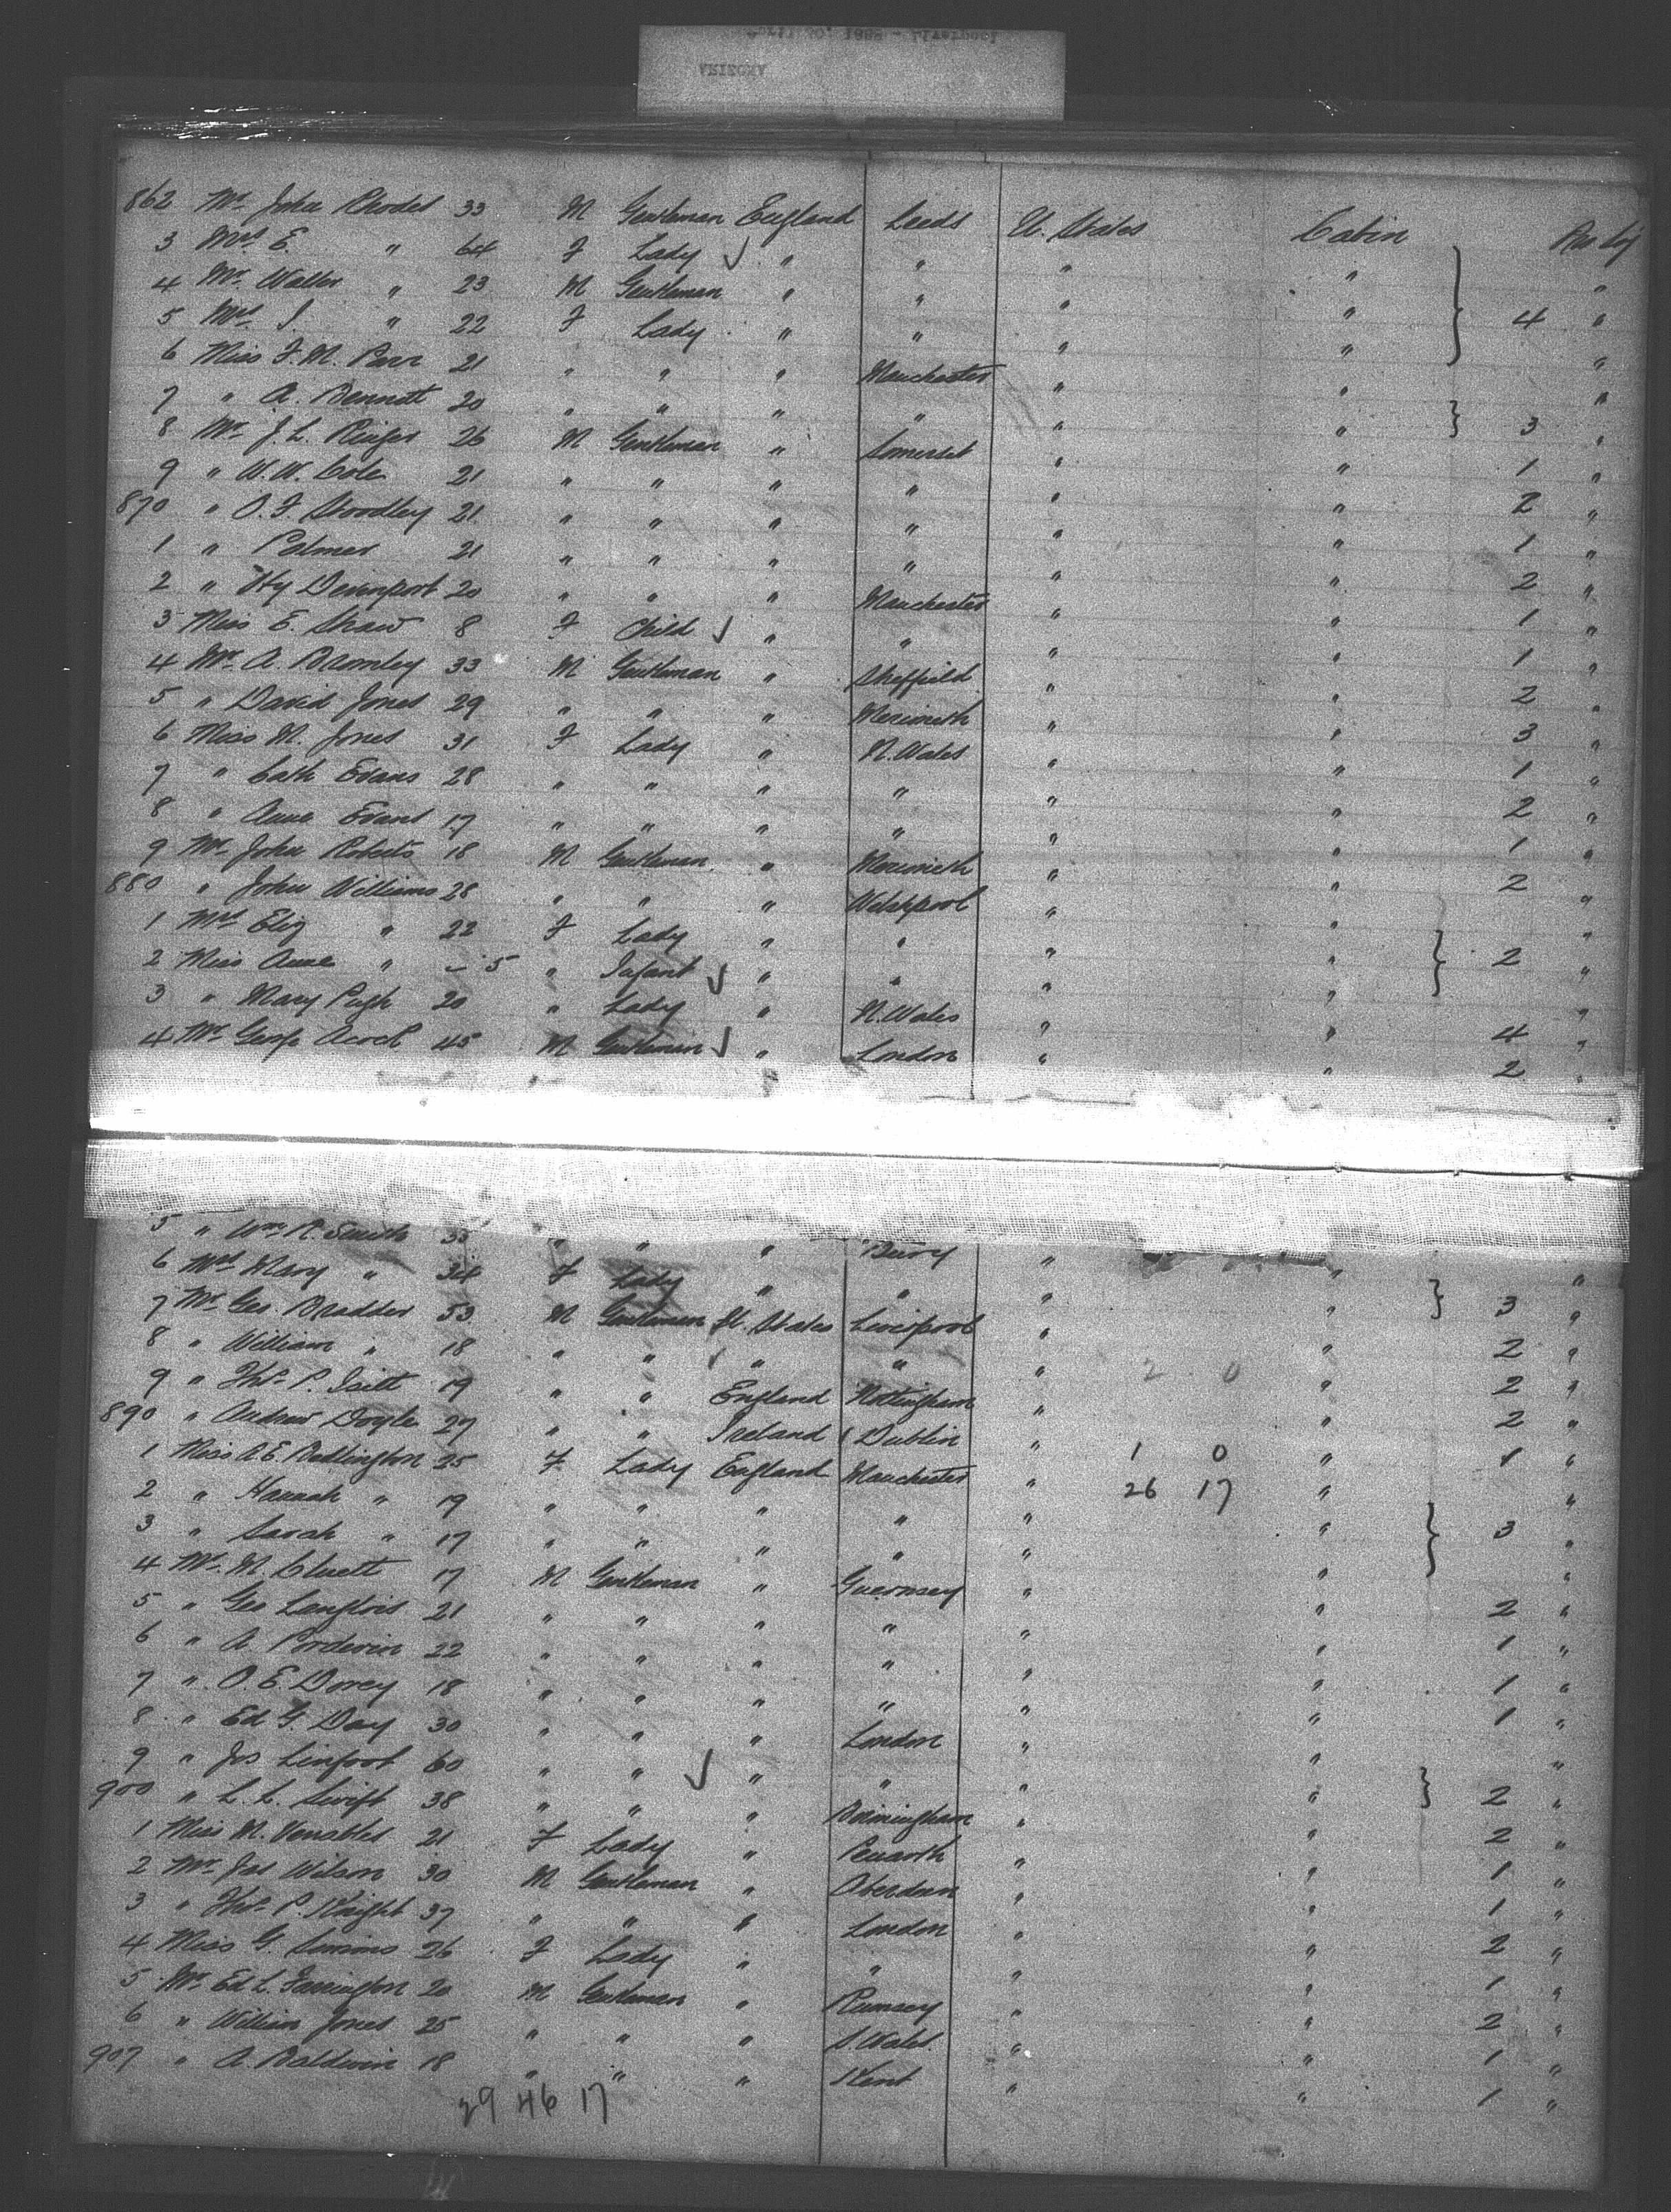 April 30, 1888 - Liverpool
ARIZONA
862 Mr. John Rhodes 33 M Gentleman England Leeds U. States Cabin
3 Mrs E. " 64 F Lady " " " " "
4 Mr. Walter " 23 M Gentleman " " " " "
5 Mrs J. " 22 F Lady " " " " 4 "
6 Miss F. M. Parr 21 " " " Manchester " " "
7 " A. Bennett 20 " " " " " " "
8 Mr. J. L. Ringer 26 M Gentleman " Somerset " " 3 "
9 " W. W. Cole 21 " " " " " " 1 "
870 " O. F. Stoodley 21 " " " " " " 2 "
1 " Palmer 21 " " " " " " 1 "
2 " Hy Devenport 20 " " " Manchester " " 2 "
3 Miss E. Shaw 8 F Child " " " " 1 "
4 Mr. A. Bromley 33 M Gentleman " Sheffield " " 1 "
5 " David Jones 29 " " " Merioneth " " 2 "
6 Miss M. Jones 31 F Lady " N. Wales " " 3 "
7 " Cath Evans 28 " " " " " " 1 "
8 " Anne Evans 17 " " " " " " 2 "
9 Mr. John Roberts 18 M Gentleman " Merioneth " " 1 "
880 " John Williams 28 " " " Welshpool " " 2 "
1 Mrs Eliz " 22 F Lady " " " " "
2 Miss Anne " - 5 " Infant " " " " 2 "
3 " Mary Pugh 20 " Lady " N. Wales " " "
4 Mr. George Acock 45 M Gentleman " London " " 4 "
2 "
5 " Wm R. Smith 35 " " " Bury " "
6 Mrs Mary " 34 F Lady " " " " "
7 Mr. Geo. Bradder 53 M Gentleman U. States Liverpool " " 3 "
8 " William " 18 " " " " " " 2 "
2 0
9 " Thos P. Isitt 19 " " England Nottingham " " 2 "
890 " Andrew Doyle 27 " " Ireland Dublin " " 2 "
1 Miss A. E. Bedlington 25 F Lady England Manchester " 1 0 " 1 "
2 " Hannah " 19 " " " " " 26 17 " "
3 " Sarah " 17 " " " " " " 3 "
4 Mr. M. Cluett 17 M Gentleman " Guernsey " " "
5 " Geo Langlois 21 " " " " " " 2 "
6 " A. Pordevin 22 " " " " " " 1 "
7 " O. E. Dorey 18 " " " " " " 1 "
8 " Ed G. Day 30 " " " London " " 1 "
9 " Jos Linfoot 60 " " " " " " "
900 " L. L. Swift 38 " " " Birmingham " " 2 "
1 Miss M. Venables 21 F Lady " Penarth " " 2 "
2 Mr. Jas Wilson 30 M Gentleman " Aberdeen " " 1 "
3 " Thos P. Knight 37 " " " London " " 1 "
4 Miss G. Simmons 26 F Lady " " " " 2 "
5 Mr. Ed L. Farrington 20 M Gentleman " Ramsey " " 1 "
6 " William Jones 25 " " " S. Wales " " 2 "
907 " A. Baldwin 18 " " " Kent " " 1 "
1 "
29 46 17